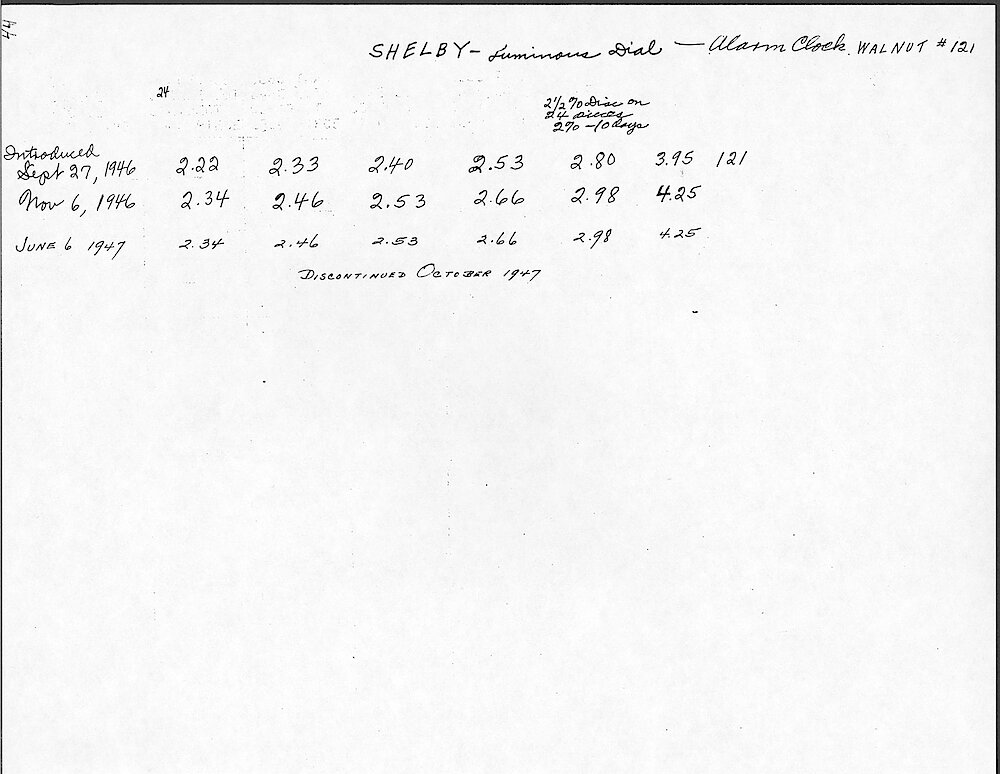 44
SHELBY - Luminous Dial — Alarm Clock. WALNUT # 121
24
2 1/2 % Disc on
24 pieces
2% - 10 Days
Introduced
Sept 27, 1946 2.22 2.33 2.40 2.53 2.80 3.95 121
Nov 6, 1946 2.34 2.46 2.53 2.66 2.98 4.25
JUNE 6 1947 2.34 2.46 2.53 2.66 2.98 4.25
DISCONTINUED OCTOBER 1947